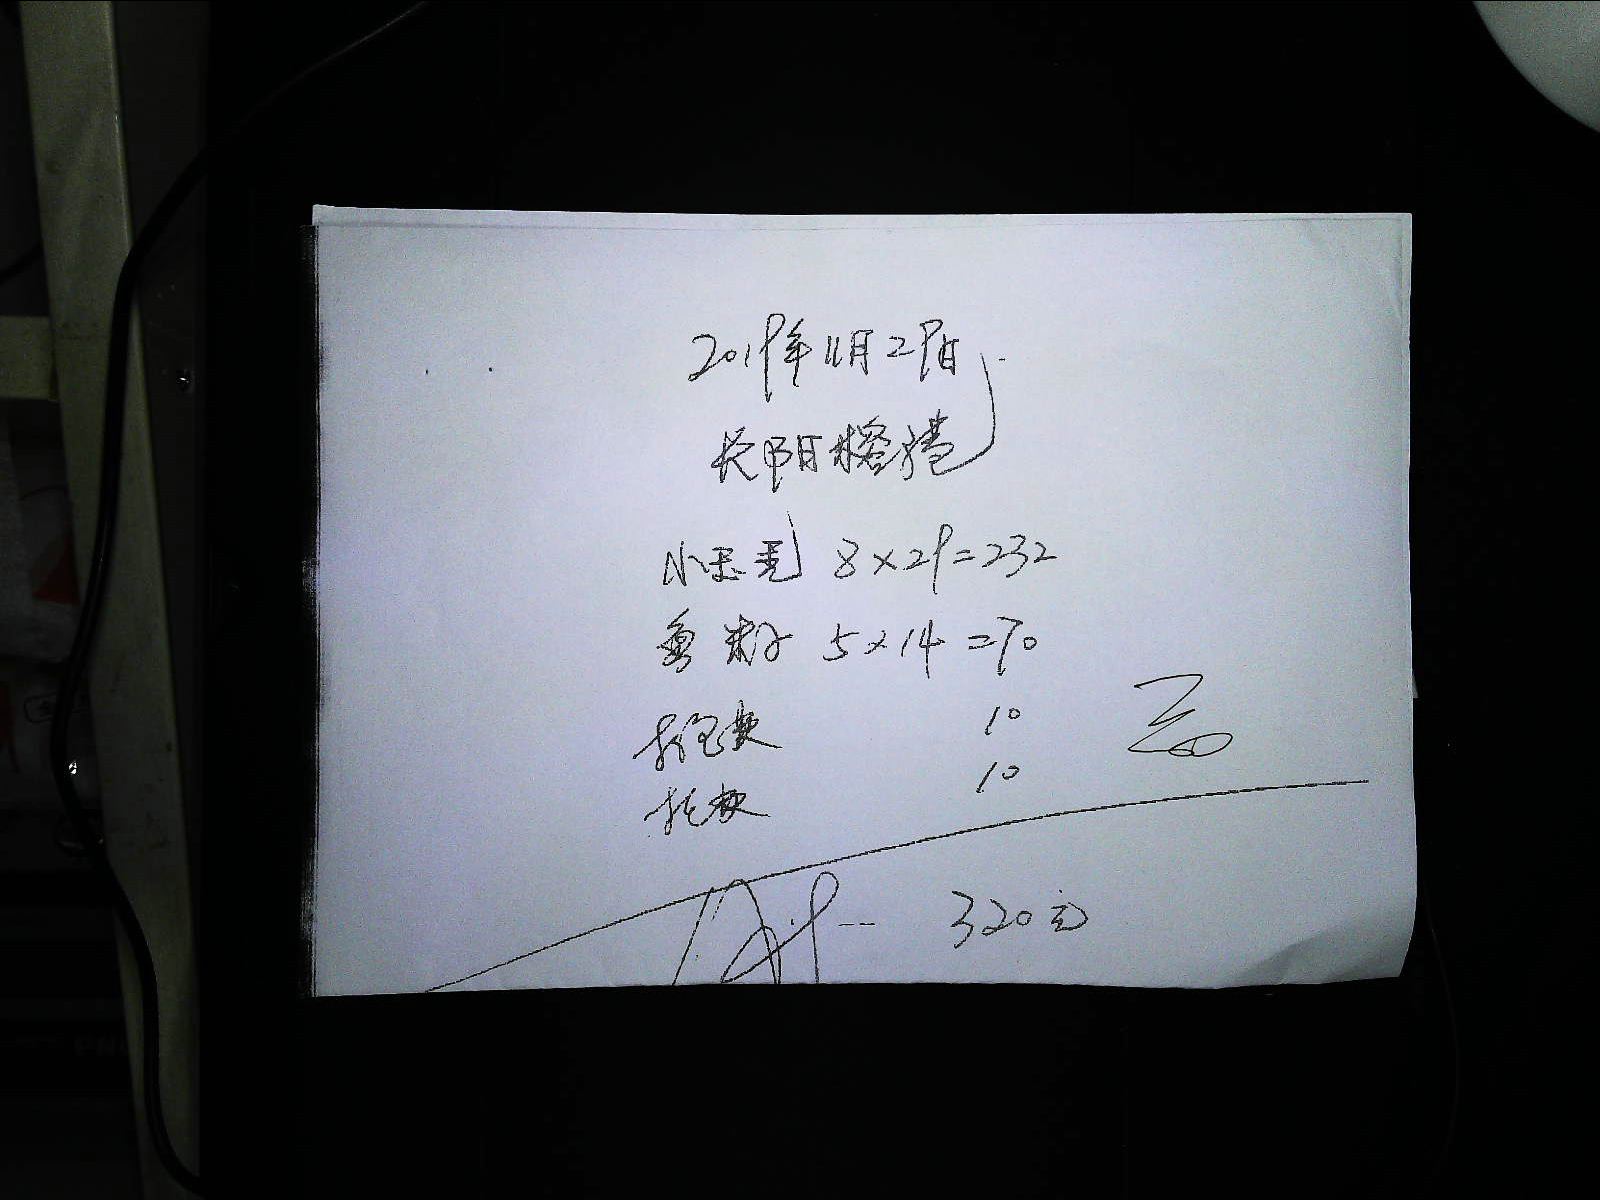 2019年11月29日
长阳榕腾
小玉竜 8×29=232
鱼米子 5×14=70
打包费 10
托费 10
320元